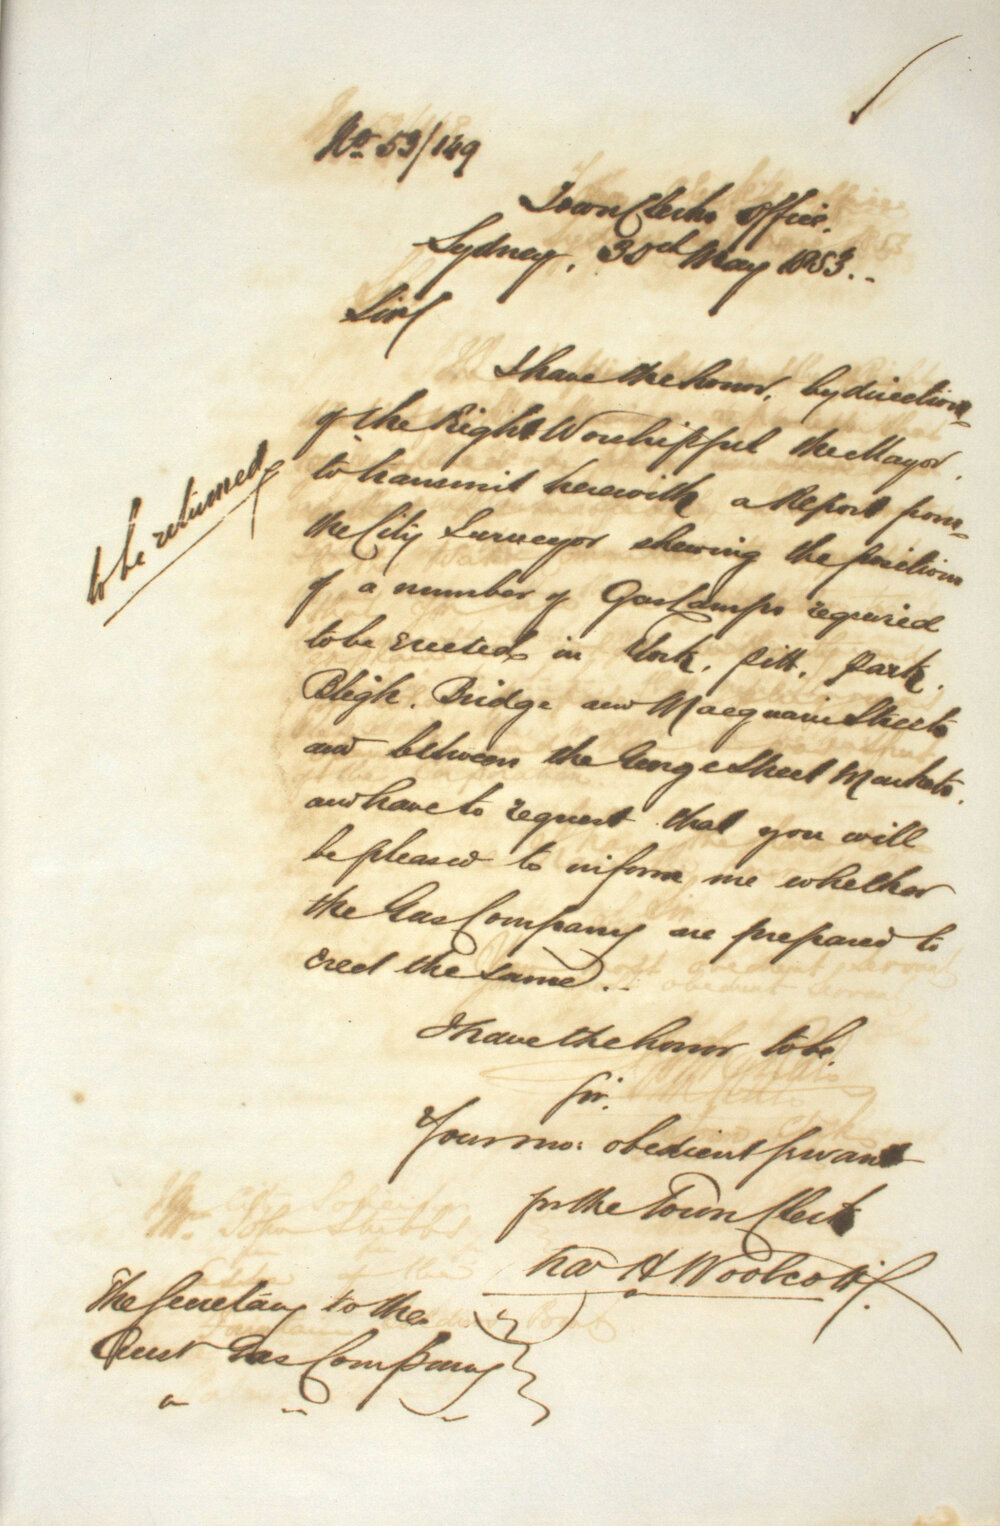 No. 53/149
Town Clerks Office.
Sydney, 30th May 1853..
Sir/
I have the honor, by direction
of the Right Worshipful the Mayor,
to transmit herewith a Report from
the City Surveyor shewing the position
of a number of Gas Lamps required
to be erected in York, Pitt, Park,
Bligh, Bridge and Macquarie Streets
and between the George Street Markets,
and have to request that you will
be pleased to inform me whether
the Gas Company are prepared to
erect the same..
to be returned
I have the honor to be,
Sir,
Your mo: obedient Servant
for the Town Clerk
Chas H Woolcott.
The Secretary to the
Aust Gas Company